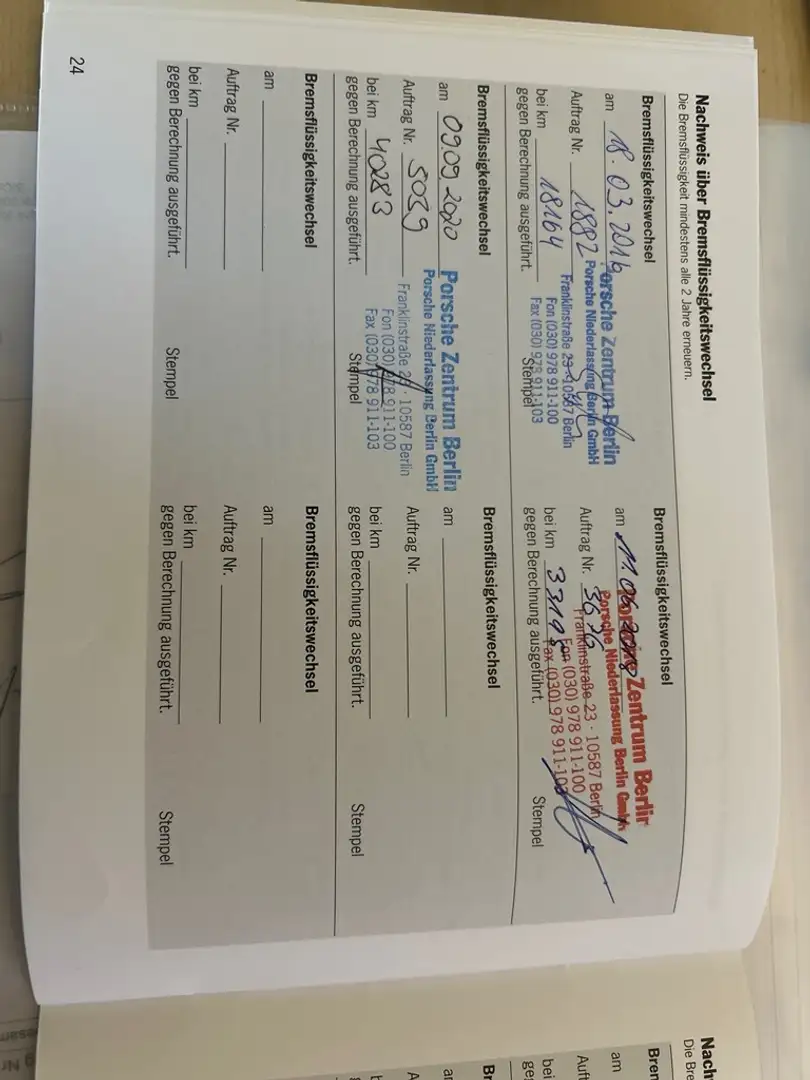 Nachweis über Bremsflüssigkeitswechsel
Die Bremsflüssigkeit mindestens alle 2 Jahre erneuern.
Bremsflüssigkeitswechsel
am 18.03.2016
Auftrag Nr. 1882
bei km 18164
gegen Berechnung ausgeführt.
Porsche Zentrum Berlin
Porsche Niederlassung Berlin GmbH
Franklinstraße 23 · 10587 Berlin
Fon (030) 978 911-100
Fax (030) 978 911-103
Stempel
Bremsflüssigkeitswechsel
am 11.06.2018
Auftrag Nr. 3676
bei km 33198
gegen Berechnung ausgeführt.
Porsche Zentrum Berlin
Porsche Niederlassung Berlin GmbH
Franklinstraße 23 · 10587 Berlin
Fon (030) 978 911-100
Fax (030) 978 911-103
Stempel
Bremsflüssigkeitswechsel
am 09.09.2020
Auftrag Nr. 5039
bei km 40283
gegen Berechnung ausgeführt.
Porsche Zentrum Berlin
Porsche Niederlassung Berlin GmbH
Franklinstraße 23 · 10587 Berlin
Fon (030) 978 911-100
Fax (030) 978 911-103
Stempel
Bremsflüssigkeitswechsel
am
Auftrag Nr.
bei km
gegen Berechnung ausgeführt.
Stempel
Bremsflüssigkeitswechsel
am
Auftrag Nr.
bei km
gegen Berechnung ausgeführt.
Stempel
Bremsflüssigkeitswechsel
am
Auftrag Nr.
bei km
gegen Berechnung ausgeführt.
Stempel
24
Nach
Die Bre
Bren
am
Auft
bei
geg
Br
am
A
b